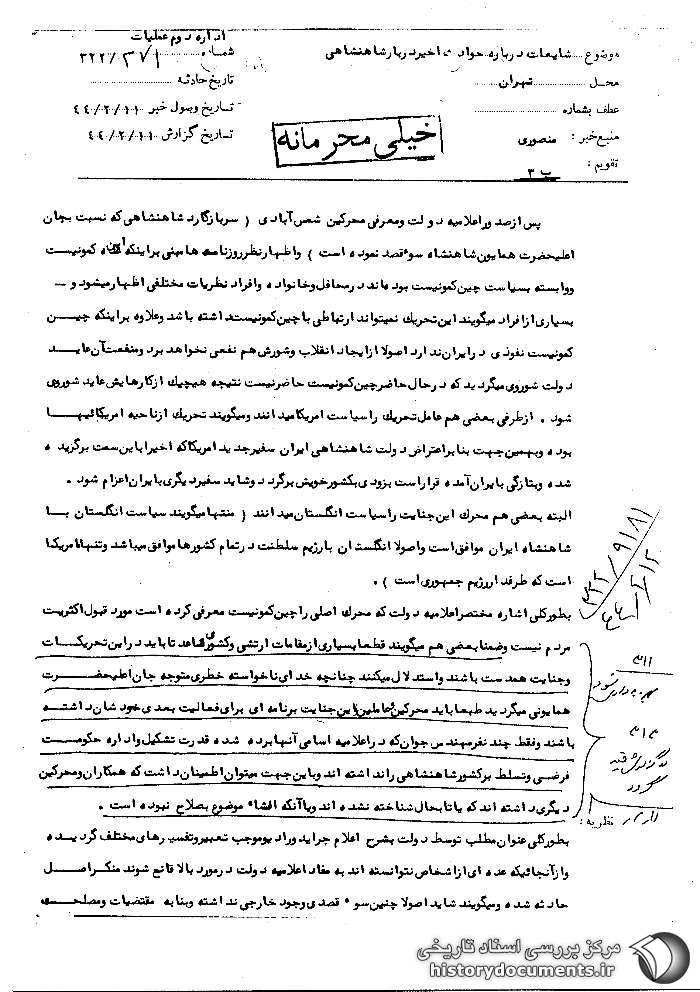 اداره دوم عملیات
موضوع : شایعات درباره حوادث اخیر دربار شاهنشاهی
شماره ۳۲۲/۳۷۱
محل : تهران
تاریخ حادثه
عطف بشماره
تاریخ وصول خبر ۴۴/۲/۱۱
منبع خبر : منصوری
تاریخ گزارش ۴۴/۲/۱۱
خیلی محرمانه
تقویم : ب ۳
پس از صدور اعلامیه دولت ومعرفی محرکین شمس آبادی ( سرباز گارد شاهنشاهی که نسبت بجان
اعلیحضرت همایون شاهنشاه سوء قصد نموده است ) واظهار نظر روزنامه ها مبنی بر اینکه کمونیست
ووابسته بسیاست چین کمونیست بوده اند در محافل وخانواده وافراد نظریات مختلفی اظهار میشود و -
بسیاری از افراد میگویند این تحریک نمیتواند ارتباطی با چین کمونیست داشته باشد وعلاوه بر اینکه چین
کمونیست نفوذی در ایران ندارد اصولا از ایجاد انقلاب وشورش هم نفعی نخواهد برد ومنفعت آن عاید
دولت شوروی میگردید که در حال حاضر چین کمونیست حاضر نیست نتیجه هیچیک از کارهایش عاید شوروی
شود . از طرفی بعضی هم عامل تحریک را سیاست امریکا میدانند ومیگویند تحریک از ناحیه امریکائیها
بوده وبهمین جهت بنابر اعتراض دولت شاهنشاهی ایران سفیر جدید امریکا که اخیرا باین سمت برگزیده
شده وبتازگی بایران آمده قرار است بزودی بکشور خویش برگردد وشاید سفیر دیگری بایران اعزام شود .
البته بعضی هم محرک این جنایت را سیاست انگلستان میدانند ( منتها میگویند سیاست انگلستان با
شاهنشاه ایران موافق است واصولا انگلستان با رژیم سلطنت در تمام کشورها موافق میباشد وتنها امریکا
است که طرفدار رژیم جمهوری است ) .
بطور کلی اشاره مختصر اعلامیه دولت که محرک اصلی را چین کمونیست معرفی کرده است مورد قبول اکثریت
مردم نیست وضمنا بعضی هم میگویند قطعا بسیاری از مقامات ارتشی وکشوری قاعدتا باید در این تحریکات
وجنایت همدست باشند واستدلال میکنند چنانچه خدای ناخواسته خطری متوجه جان اعلیحضرت
همایونی میگردید طبعا باید محرکین ( عاملین ) این جنایت برنامه ای برای فعالیت بعدی خودشان داشته
باشند وفقط چند نفر مهندس جوان که در اعلامیه اسامی آنها برده شده قدرت تشکیل واداره حکومت
فرضی وتسلط بر کشور شاهنشاهی را نداشته اند وباین جهت میتوان اطمینان داشت که همکاران ومحرکین
دیگری داشته اند که یا تا بحال شناخته نشده اند ویا آنکه افشاء موضوع بصلاح نبوده است .
نظریه :
بطور کلی عنوان مطلب توسط دولت بشرح اعلام جراید ورادیو موجب تعبیر وتفسیرهای مختلف گردیده
واز آنجائیکه عده ای از اشخاص نتوانسته اند به مفاد اعلامیه دولت در مورد بالا قانع شوند منکر اصل
حادثه شده ومیگویند شاید اصولا چنین سوء قصدی وجود خارجی نداشته وبنا به مقتضیات ومصلحتی
۳۲۲/۹۱۸۱
۳۱۱
بهره برداری شود
۳۱۲
مرکز بررسی اسناد تاریخی
historydocuments.ir